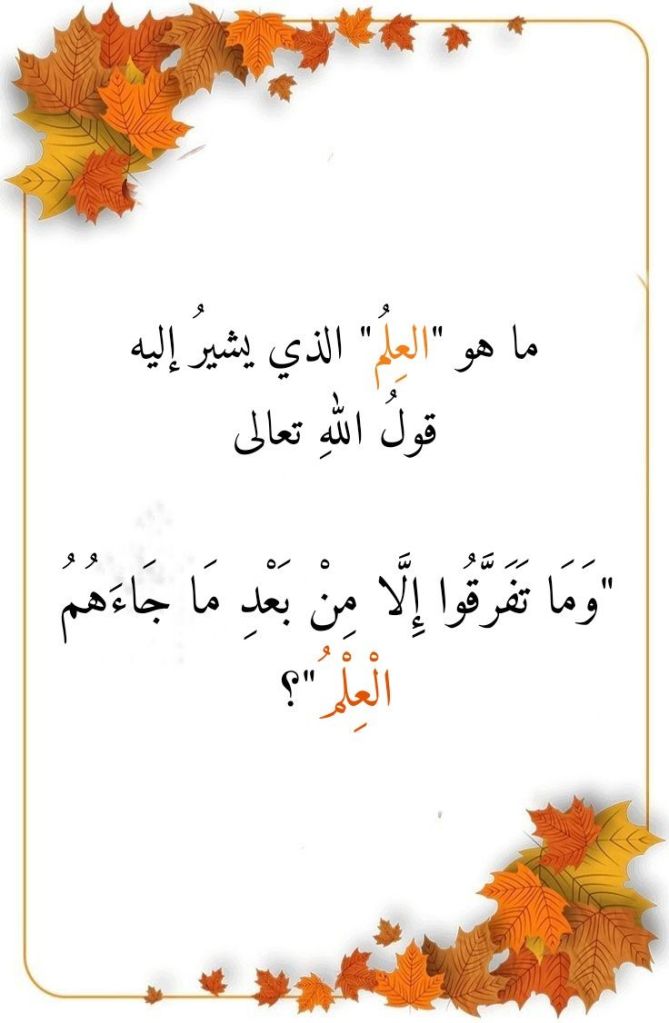 ما هو "العِلمُ" الذي يشيرُ إليه
قولُ اللهِ تعالى
"وَمَا تَفَرَّقُوا إِلَّا مِنْ بَعْدِ مَا جَاءَهُمُ
الْعِلْمُ"؟